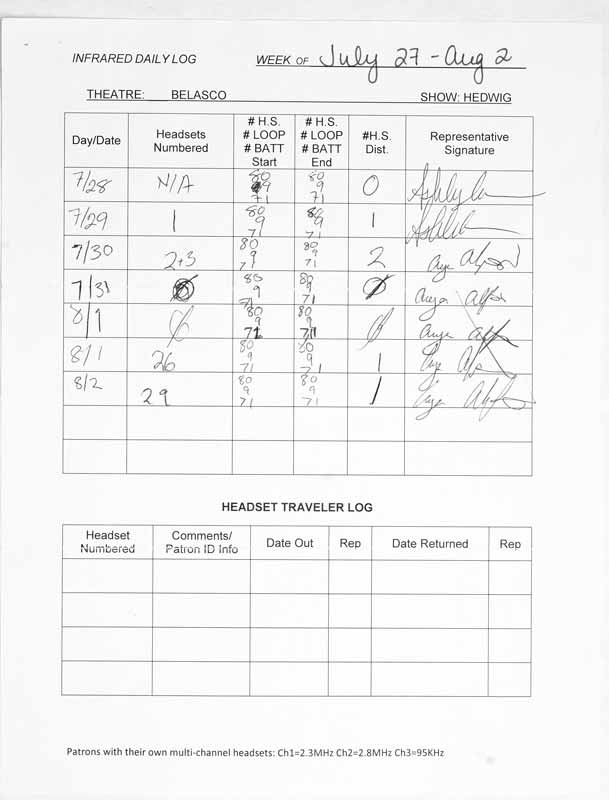 INFRARED DAILY LOG WEEK OF July 27 - Aug 2
THEATRE: BELASCO SHOW: HEDWIG
Day/Date Headsets Numbered # H.S. # LOOP # BATT Start # H.S. # LOOP # BATT End #H.S. Dist. Representative Signature
7/28 N/A 80 9 71 80 9 71 0
7/29 1 80 9 71 80 9 71 1
7/30 2+3 80 9 71 80 9 71 2
7/31 0 80 9 71 80 9 71 0
8/1 0 80 9 71 80 9 71 0
8/1 26 80 9 71 80 9 71 1
8/2 29 80 9 71 80 9 71 1
HEADSET TRAVELER LOG
Headset Numbered Comments/ Patron ID Info Date Out Rep Date Returned Rep
Patrons with their own multi-channel headsets: Ch1=2.3MHz Ch2=2.8MHz Ch3=95KHz